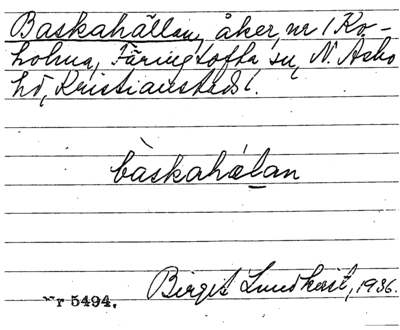 Baskahällan, åker, nr 1 Ko-
holma, Färingtofta sn, N. Åsbo
hd, Kristianstads l.
bàskahǽlan
Birgit Lundkvist, 1936.
Nr 5494.